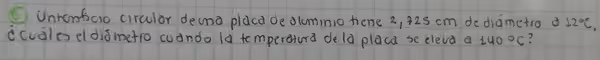 Un orificio circular de una placa de aluminio tiene 2,725 cm de diámetro a 12°C,
¿cuál es el diámetro cuando la temperatura de la placa se eleva a 140 °C?